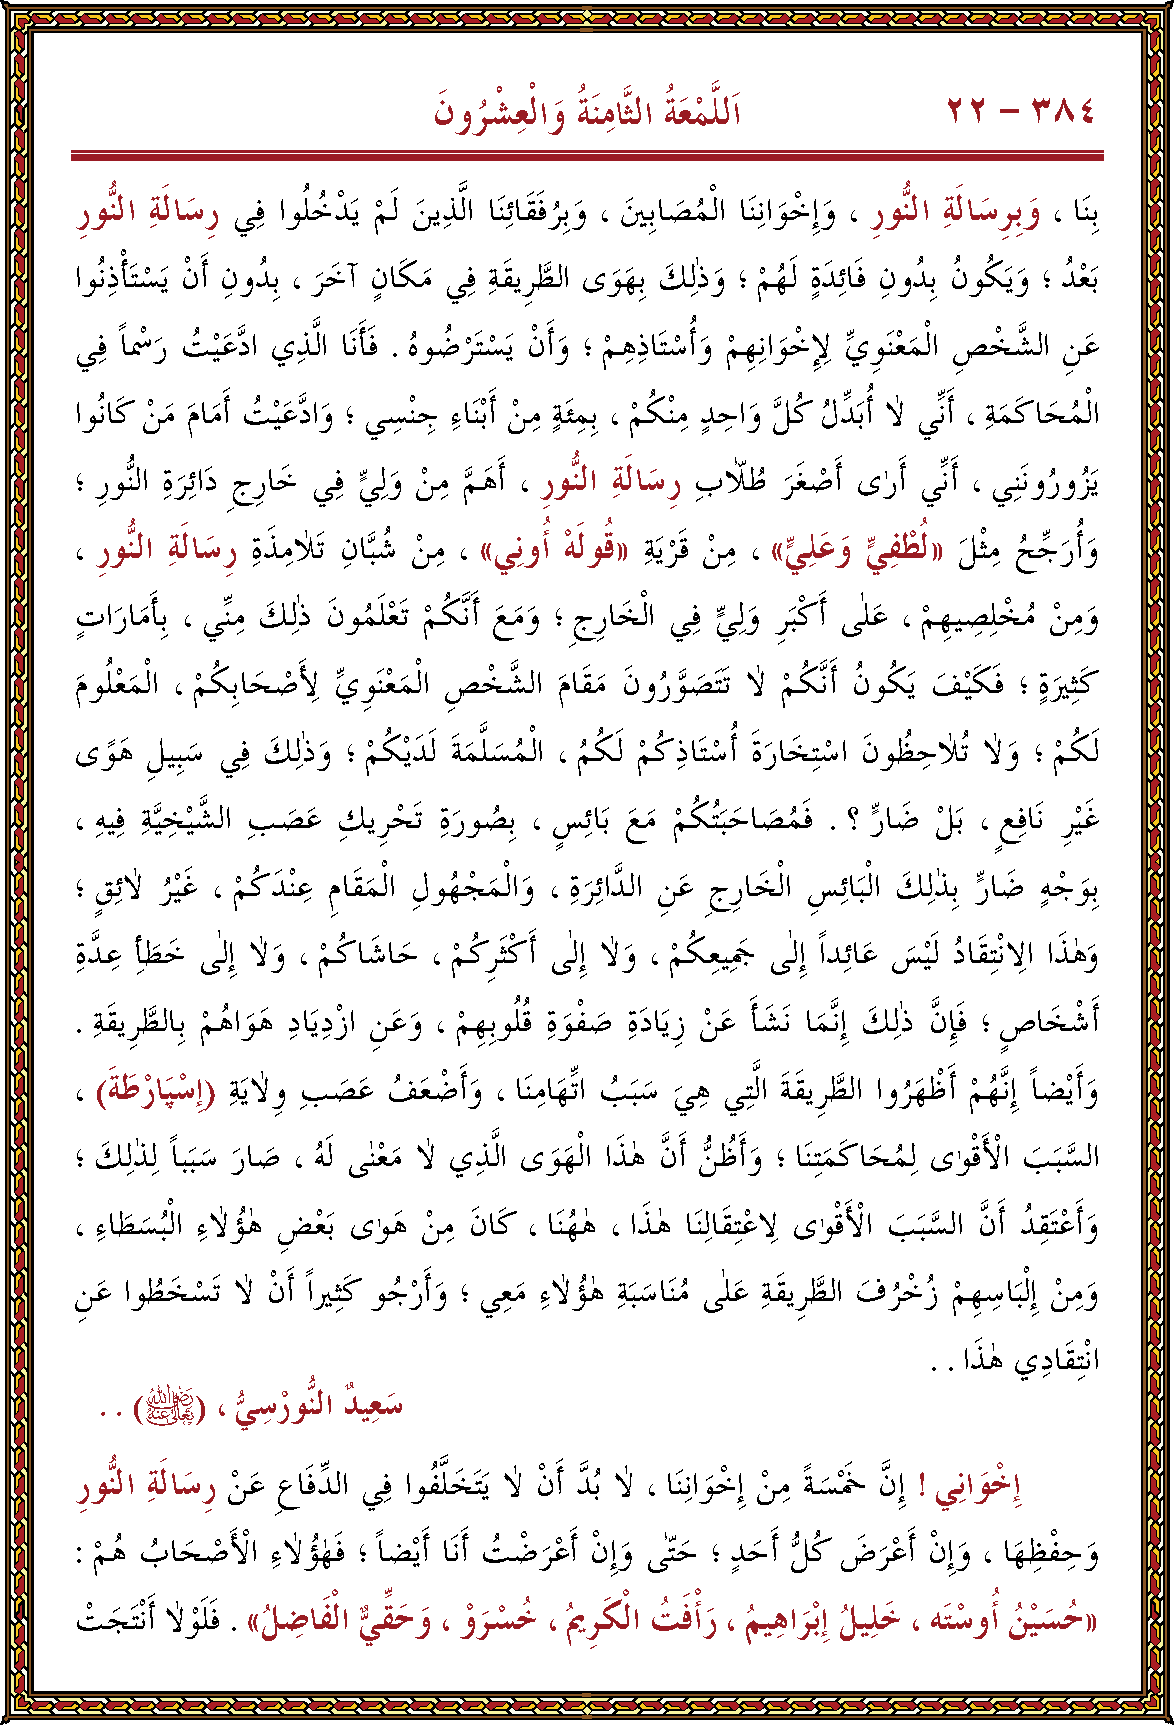 ٣٨٤ – ٢٢
اَللَّمْعَةُ الثَّامِنَةُ وَالْعِشْرُونَ
بِنَا ، وَبِرِسَالَةِ النُّورِ ، وَإِخْوَانِنَا الْمُصَابِينَ ، وَبِرُفَقَائِنَا الَّذِينَ لَمْ يَدْخُلُوا فِي رِسَالَةِ النُّورِ
بَعْدُ ؛ وَيَكُونُ بِدُونِ فَائِدَةٍ لَهُمْ ؛ وَذٰلِكَ بِهَوَى الطَّرِيقَةِ فِي مَكَانٍ آخَرَ ، بِدُونِ أَنْ يَسْتَأْذِنُوا
عَنِ الشَّخْصِ الْمَعْنَوِيِّ لِإِخْوَانِهِمْ وَأُسْتَاذِهِمْ ؛ وَأَنْ يَسْتَرْضُوهُ . فَأَنَا الَّذِي ادَّعَيْتُ رَسْماً فِي
الْمُحَاكَمَةِ ، أَنِّي لَا أُبَدِّلُ كُلَّ وَاحِدٍ مِنْكُمْ ، بِمِئَةٍ مِنْ أَبْنَاءِ جِنْسِي ؛ وَادَّعَيْتُ أَمَامَ مَنْ كَانُوا
يَزُورُونَنِي ، أَنِّي أَرٰى أَصْغَرَ طُلَّابِ رِسَالَةِ النُّورِ ، أَهَمَّ مِنْ وَلِيٍّ فِي خَارِجِ دَائِرَةِ النُّورِ ؛
وَأُرَجِّحُ مِثْلَ «لُطْفِيٍّ وَعَلِيٍّ» ، مِنْ قَرْيَةِ «قُولَهْ أُونِي» ، مِنْ شُبَّانِ تَلَامِذَةِ رِسَالَةِ النُّورِ ،
وَمِنْ مُخْلِصِيهِمْ ، عَلٰى أَكْبَرِ وَلِيٍّ فِي الْخَارِجِ ؛ وَمَعَ أَنَّكُمْ تَعْلَمُونَ ذٰلِكَ مِنِّي ، بِأَمَارَاتٍ
كَثِيرَةٍ ؛ فَكَيْفَ يَكُونُ أَنَّكُمْ لَا تَتَصَوَّرُونَ مَقَامَ الشَّخْصِ الْمَعْنَوِيِّ لِأَصْحَابِكُمْ ، الْمَعْلُومَ
لَكُمْ ؛ وَلَا تُلَاحِظُونَ اسْتِخَارَةَ أُسْتَاذِكُمْ لَكُمُ ، الْمُسَلَّمَةَ لَدَيْكُمْ ؛ وَذٰلِكَ فِي سَبِيلِ هَوًى
غَيْرِ نَافِعٍ ، بَلْ ضَارٍّ ؟ . فَمُصَاحَبَتُكُمْ مَعَ بَائِسٍ ، بِصُورَةِ تَحْرِيكِ عَصَبِ الشَّيْخِيَّةِ فِيهِ ،
بِوَجْهٍ ضَارٍّ بِذٰلِكَ الْبَائِسِ الْخَارِجِ عَنِ الدَّائِرَةِ ، وَالْمَجْهُولِ الْمَقَامِ عِنْدَكُمْ ، غَيْرُ لَائِقٍ ؛
وَهٰذَا الِانْتِقَادُ لَيْسَ عَائِداً إِلٰى جَمِيعِكُمْ ، وَلَا إِلٰى أَكْثَرِكُمْ ، حَاشَاكُمْ ، وَلَا إِلٰى خَطَأِ عِدَّةِ
أَشْخَاصٍ ؛ فَإِنَّ ذٰلِكَ إِنَّمَا نَشَأَ عَنْ زِيَادَةِ صَفْوَةِ قُلُوبِهِمْ ، وَعَنِ ازْدِيَادِ هَوَاهُمْ بِالطَّرِيقَةِ .
وَأَيْضاً إِنَّهُمْ أَظْهَرُوا الطَّرِيقَةَ الَّتِي هِيَ سَبَبُ اتِّهَامِنَا ، وَأَضْعَفُ عَصَبِ وِلَايَةِ (إِسْپَارْطَةَ) ،
السَّبَبَ الْأَقْوٰى لِمُحَاكَمَتِنَا ؛ وَأَظُنُّ أَنَّ هٰذَا الْهَوَى الَّذِي لَا مَعْنٰى لَهُ ، صَارَ سَبَباً لِذٰلِكَ ؛
وَأَعْتَقِدُ أَنَّ السَّبَبَ الْأَقْوٰى لِاعْتِقَالِنَا هٰذَا ، هٰهُنَا ، كَانَ مِنْ هَوٰى بَعْضِ هٰؤُلَاءِ الْبُسَطَاءِ ،
وَمِنْ إِلْبَاسِهِمْ زُخْرُفَ الطَّرِيقَةِ عَلٰى مُنَاسَبَةِ هٰؤُلَاءِ مَعِي ؛ وَأَرْجُو كَثِيراً أَنْ لَا تَسْخَطُوا عَنِ
انْتِقَادِي هٰذَا . .
سَعِيدٌ النُّورْسِيُّ ، (رَضِيَ اللهُ تَعَالٰى عَنْهُ) . .
إِخْوَانِي ! إِنَّ خَمْسَةً مِنْ إِخْوَانِنَا ، لَا بُدَّ أَنْ لَا يَتَخَلَّفُوا فِي الدِّفَاعِ عَنْ رِسَالَةِ النُّورِ
وَحِفْظِهَا ، وَإِنْ أَعْرَضَ كُلُّ أَحَدٍ ؛ حَتّٰى وَإِنْ أَعْرَضْتُ أَنَا أَيْضاً ؛ فَهٰؤُلَاءِ الْأَصْحَابُ هُمْ :
«حُسَيْنُ أُوسْتَه ، خَلِيلُ إِبْرَاهِيمُ ، رَأْفَتُ الْكَرِيمُ ، خُسْرَوْ ، وَحَقِّيٌّ الْفَاضِلُ» . فَلَوْلَا أَنْتَجَتْ